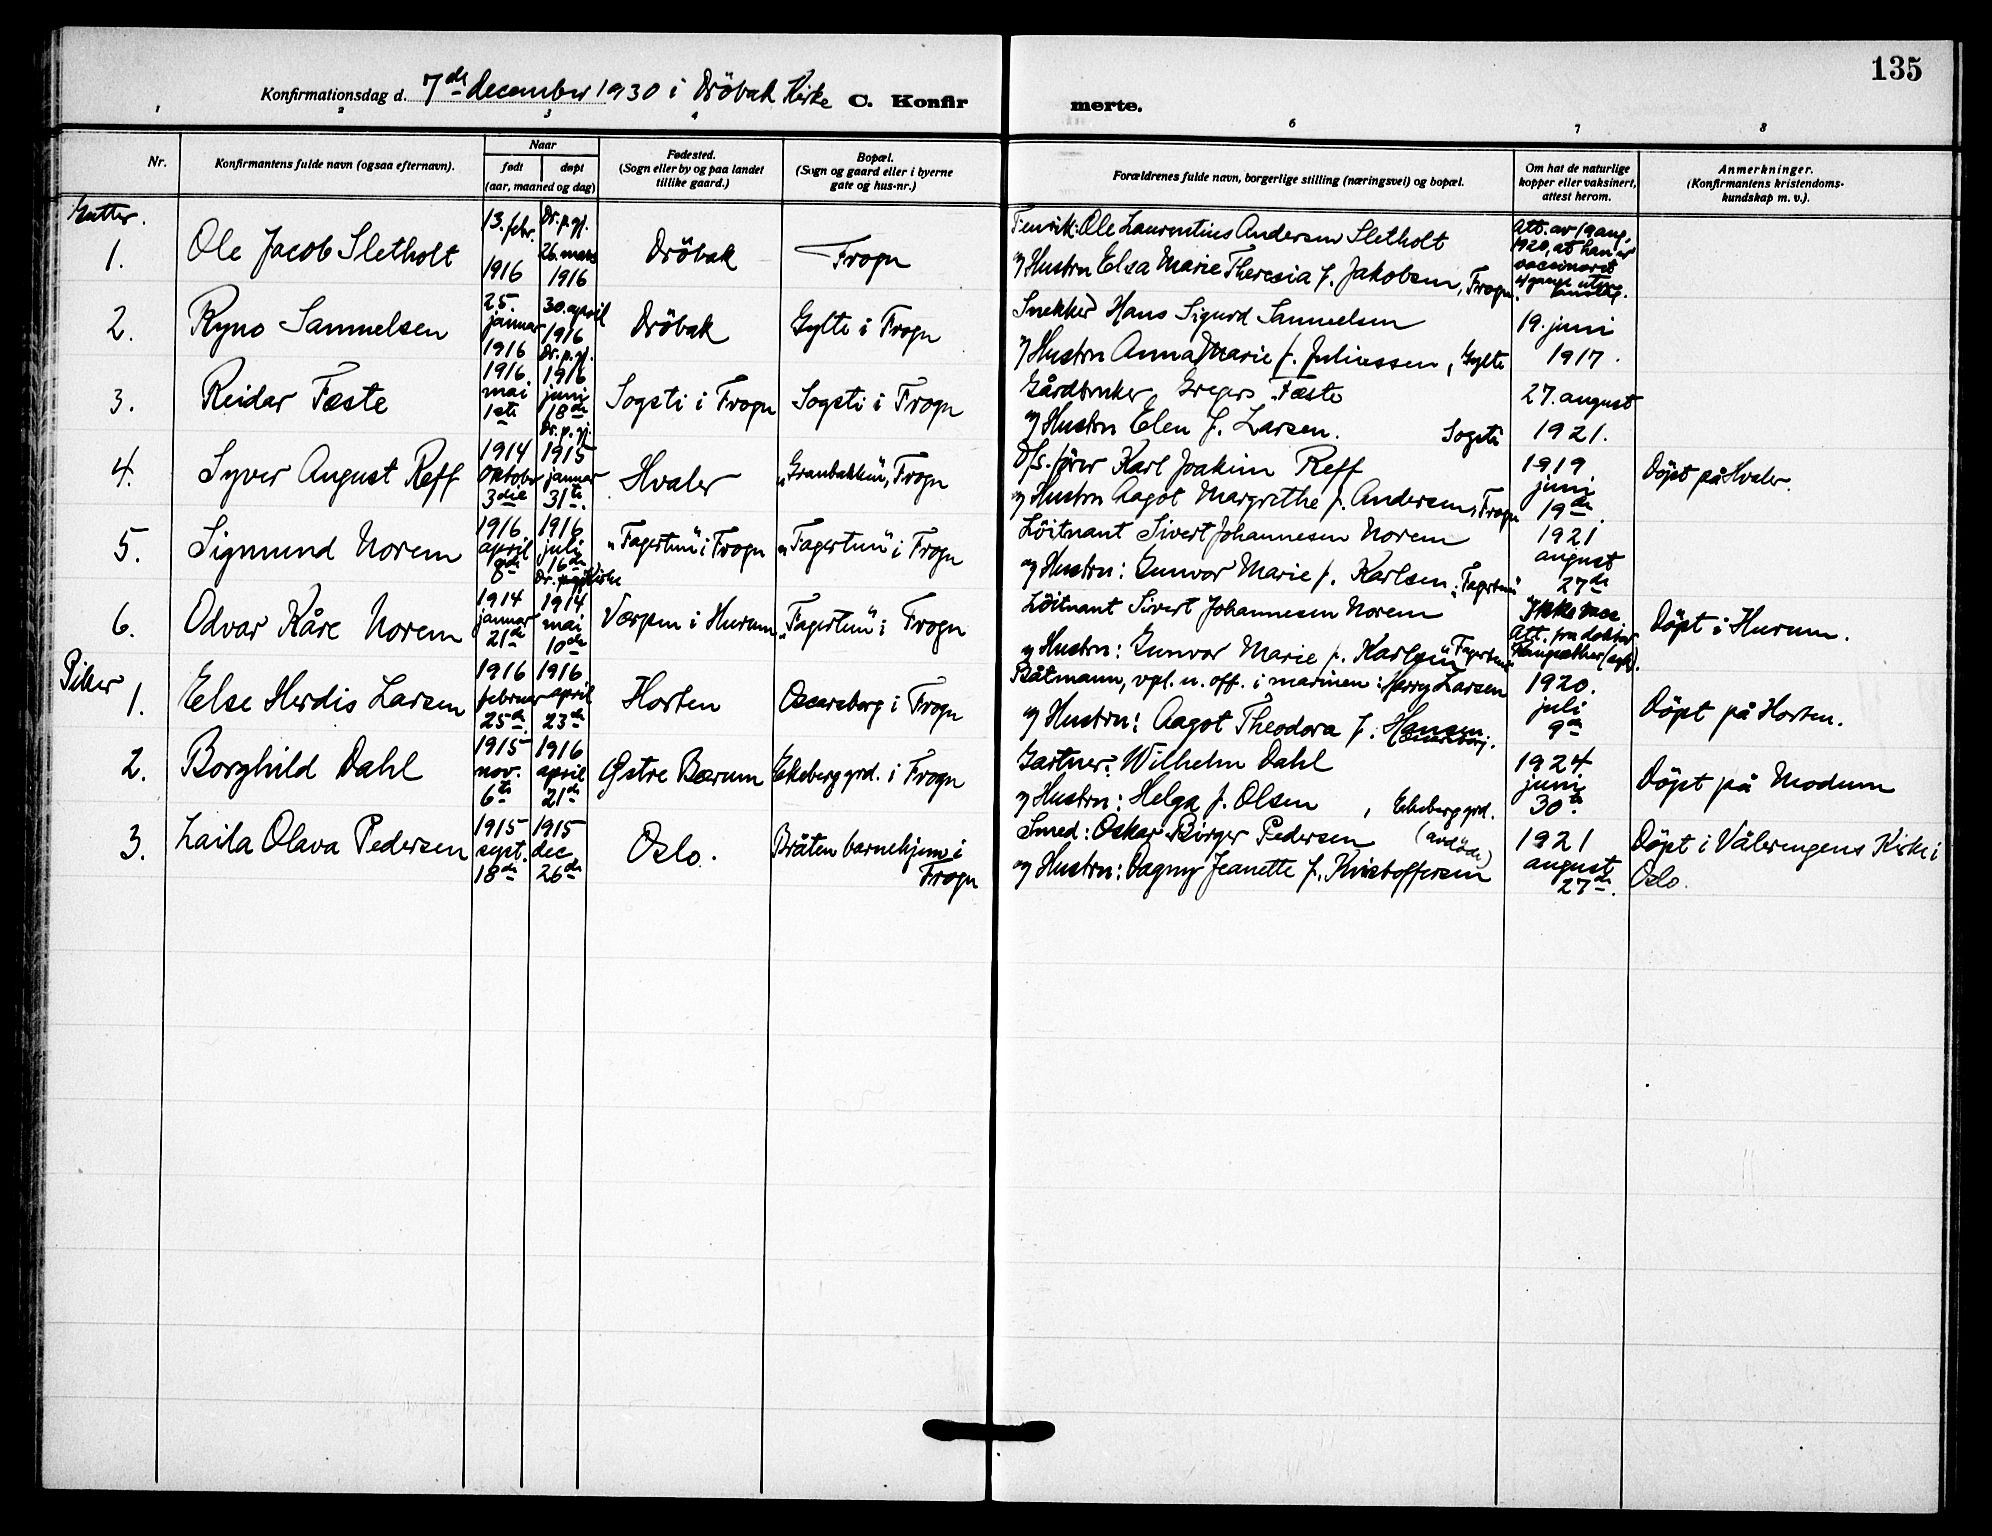 135
Konfirmationsdag d. 7de december 1930 i Dröbak Kirke C. Konfirmerte.
1 2 3 4 6 7 8
Nr.
Konfirmantens fulde navn (ogsaa efternavn).
Naar
født døpt
(aar, maaned og dag)
Fødested.
(Sogn eller by og paa landet
tillike gaard.)
Bopæl.
(Sogn og gaard eller i byerne
gate og hus-nr.)
Forældrenes fulde navn, borgerlige stilling (næringsvei) og bopæl.
Om hat de naturlige
kopper eller vaksinert,
attest herom.
Anmerkninger.
(Konfirmantens kristendoms-
kundskap m. v.).
Gutter.
1. Ole Jacob Sletholt
13. febr.
1916
Dr. p. gj.
26. mars
1916
Dröbak
Frogn
Fenrik: Ole Laurentius Andersen Sletholt
og Hustru Elsa Marie Theresia f. Jakobsen, Frogn.
Att. av 19 aug.
1920, at han er
vaccineret
4 gange uten
2. Ryno Samuelsen
25.
januar
1916
30. april
1916
Dr. p. gj.
Dröbak
Gylte i Frogn
Snekker Hans Sigurd Samuelsen
og Hustru Anna Marie f. Juliussen, Gylte
19. juni
1917.
3. Reidar Fæste
1916
mai
1ste
1916
juni
18de
Dr. p. gj.
Sogsti i Frogn
Sogsti i Frogn
Gårdbruker Gregers Fæste
og Hustru Elen f. Larsen. Sogsti
27. august
1921.
4. Syver August Reff
1914
oktober
3die
1915
januar
31te.
Hvaler
"Granbakken", Frogn
Karl Joakim Reff
og Hustru Aagot Margrethe f. Andersen, Frogn
1919
juni
19de.
Döpt på Hvaler.
5. Sigmund Norem
1916
april
8de
1916
juli
16de
"Fagertun" i Frogn
"Fagertun" i Frogn
Löitnant Sivert Johannesen Norem
og Hustru: Gunvor Marie f. Karlsen. "Fagertun"
1921
august
27de
6. Odvar Kåre Norem
1914
januar
21de
1914
mai
10de
i Hurum
"Fagertun" i Frogn
Löitnant Sivert Johannesen Norem
og Hustru: Gunvor Marie f. Karlsen "Fagertun"
Ikke vacc
Att. fra doktor
Döpt i Hurum.
Piker
1. Else Herdis Larsen
1916
februar
25de
1916
april
23de
Horten
Oscarsborg i Frogn
Båtmann, vpl. u. off. i marinen: Harry Larsen
og Hustru: Aagot Theodora f. Hansen
1920.
juli
9de
Döpt på Horten.
2. Borghild Dahl
1915
nov.
6te
1916
april
21de
Østre Bærum
Ekeberg grd. i Frogn
Gartner: Wilhelm Dahl
og Hustru: Helga f. Olsen, Ekeberg grd.
1924
juni
30te
Döpt på Modum
3. Laila Olava Pedersen
1915
sept.
18de
1915
dec
26de
Oslo.
Bråten barnehjem i
Frogn
Smed: Oskar Birger Pedersen (avdöd)
og Hustru: Dagny Jeanette f. Kristoffersen
1921
august
27de.
Döpt i Vålerengens Kirke i
Oslo.